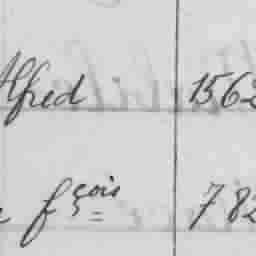 Alfred 1562
fçois 782